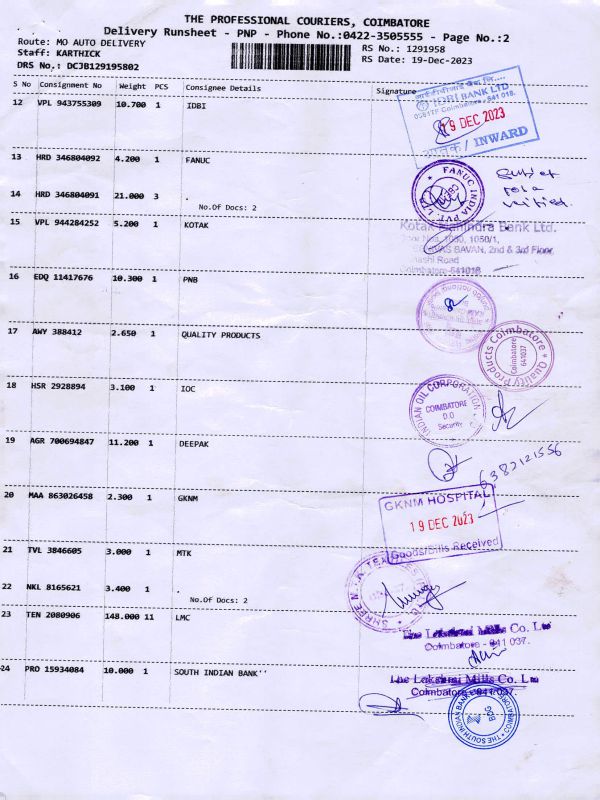 THE PROFESSIONAL COURIERS, COIMBATORE
Delivery Runsheet - PNP - Phone No.:0422-3505555 - Page No.:2
Route: MO AUTO DELIVERY
RS No.: 1291958
Staff: KARTHICK
RS Date: 19-Dec-2023
DRS No.: DCJB129195802
S No Consignment No Weight PCS Consignee Details Signature
12 VPL 943755309 10.700 1 IDBI
IDBI BANK LTD
Coimbatore - 641 018.
19 DEC 2023
आवक / INWARD
13 HRD 346804092 4.200 1 FANUC
FANUC INDIA PVT. L
14 HRD 346804091 21.000 3 .
No.Of Docs: 2
15 VPL 944284252 5.200 1 KOTAK
Kotak Mahindra Bank Ltd.
Door Nos. 1050, 1050/1,
BAVAN, 2nd & 3rd Floor,
Road
Coimbatore-641018
16 EDQ 11417676 10.300 1 PNB
17 AWY 388412 2.650 1 QUALITY PRODUCTS
Quality Products Coimbatore
Coimbatore
641037
18 HSR 2928894 3.100 1 IOC
INDIAN OIL CORPORATION
COIMBATORE
D.O
Security
19 AGR 700694847 11.200 1 DEEPAK
6382121556
20 MAA 863026458 2.300 1 GKNM
GKNM HOSPITAL
19 DEC 2023
Goods/Bills Received
21 TVL 3846605 3.000 1 MTK
SHREE M.T.K. TEX
22 NKL 8165621 3.400 1 .
No.Of Docs: 2
23 TEN 2080906 148.000 11 LMC
The Lakshmi Mills Co. Ltd
Coimbatore - 641 037.
24 PRO 15934084 10.000 1 SOUTH INDIAN BANK''
The Lakshmi Mills Co. Ltd
Coimbatore - 641 037.
THE SOUTH INDIAN BANK
COIMBATORE